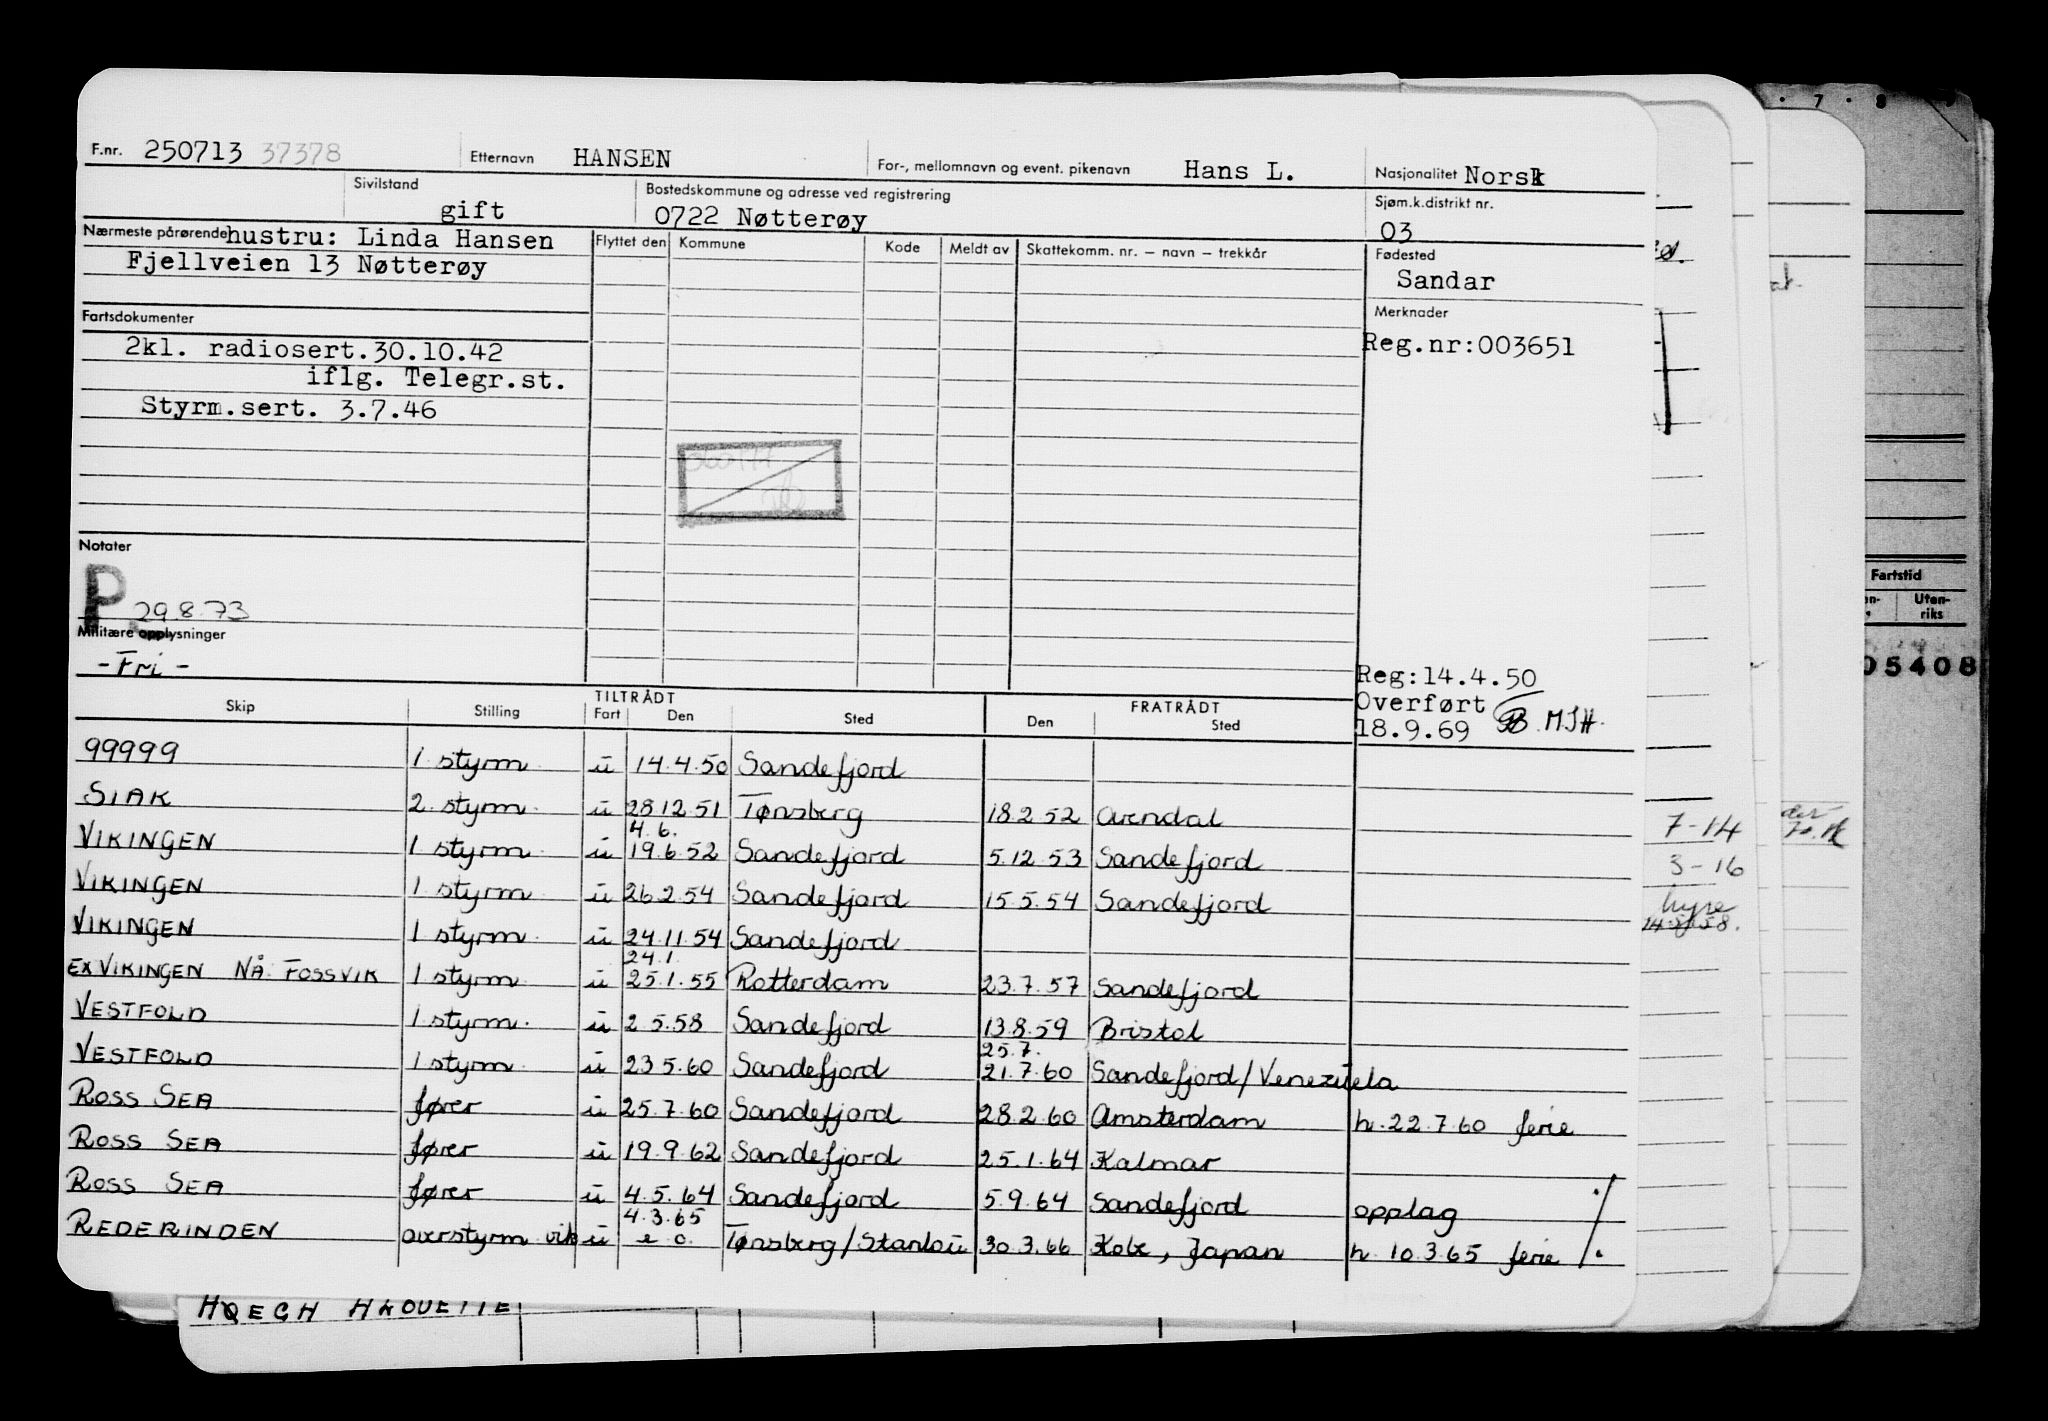 F.nr. 250713 37378 Etternavn HANSEN For-, mellomnavn og event. pikenavn Hans L. Nasjonalitet Norsk
Sivilstand gift Bostedskommune og adresse ved registrering 0722 Nøtterøy Sjøm.k.distrikt nr. 03
Nærmeste pårørende hustru: Linda Hansen Flyttet den Kommune Kode Meldt av Skattekomm. nr. – navn – trekkår Fødested
Fjellveien 13 Nøtterøy Sandar
Fartsdokumenter Merknader
2kl. radiosert.30.10.42 Reg.nr:003651
iflg. Telegr.st.
Styrm.sert. 3.7.46
Notater
P 29.8.73
Militære opplysninger
- Fri -
Reg:14.4.50
Overført
18.9.69 MJH.
Skip Stilling TILTRÅDT Fart Den Sted FRATRÅDT Den Sted
99999 1 styrm u 14.4.50 Sandefjord
SIAK 2. styrm. u 28.12.51 Tønsberg 18.2.52 Arendal
4.6.
VIKINGEN 1 styrm. u 19.6.52 Sandefjord 5.12.53 Sandefjord
VIKINGEN 1 styrm. u 26.2.54 Sandefjord 15.5.54 Sandefjord
VIKINGEN 1 styrm. u 24.11.54 Sandefjord
24.1.
EX VIKINGEN NÅ: FOSSVIK 1 styrm. u 25.1.55 Rotterdam 23.7.57 Sandefjord
VESTFOLD 1 styrm. u 2.5.58 Sandefjord 13.8.59 Bristol
25.7.
VESTFOLD 1 styrm. u 23.5.60 Sandefjord 21.7.60 Sandefjord/Venezuela
ROSS SEA fører u 25.7.60 Sandefjord 28.2.60 Amsterdam h. 22.7.60 ferie
ROSS SEA fører u 19.9.62 Sandefjord 25.1.64 Kalmar
ROSS SEA fører u 4.5.64 Sandefjord 5.9.64 Sandefjord opplag
4.3.65
REDERINDEN overstyrm vik u e.o. Tønsberg/Stanlow 30.3.66 Kobe, Japan h. 10.3.65 ferie
7-14
3-16
hyre
14.5.58.
7 8
Fartstid
Uten-
riks
05408
HØEGH